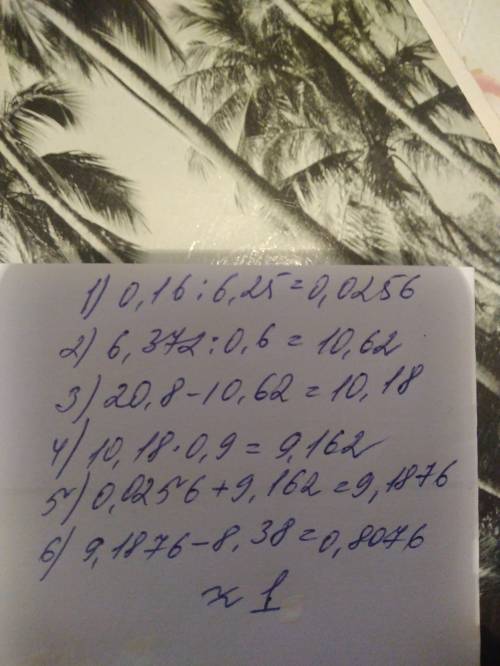 1) 0,16:6,25=0,0256
2) 6,372:0,6=10,62
3) 20,8-10,62=10,18
4) 10,18·0,9=9,162
5) 0,0256+9,162=9,1876
6) 9,1876-8,38=0,8076
≈ 1